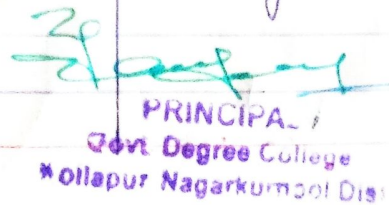 PRINCIPAL
Govt Degree College
Kollapur Nagarkurnool Dist